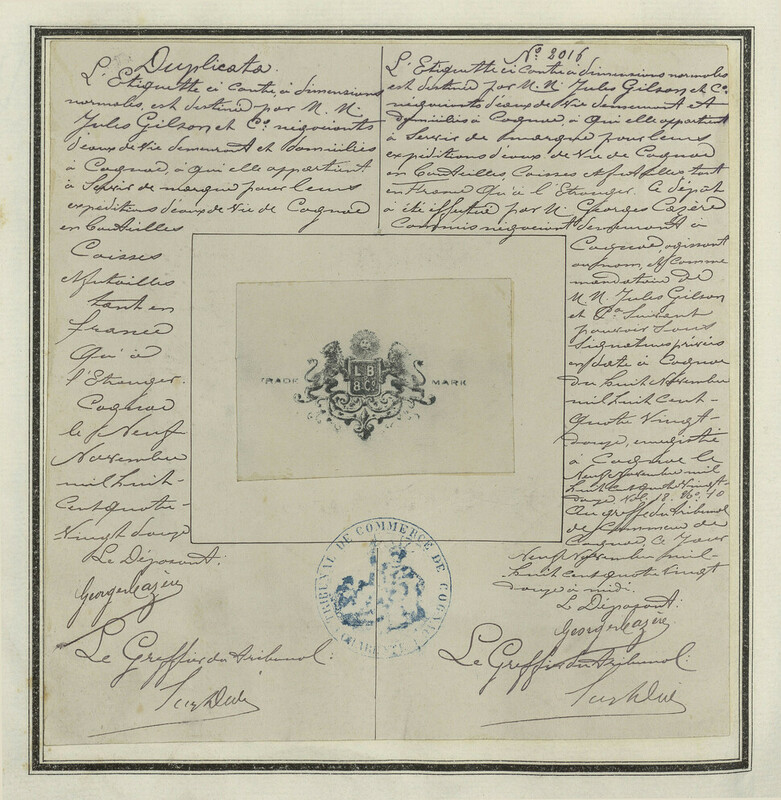 Duplicata
L'Etiquette ci contre, à dimensions
normales, est destinée par M. M.
Jules Gilson et Cie négociants
d'eaux de Vie demeurant et domiciliés
à Cognac, à qui elle appartient
à Servir de marque pour leurs
expéditions d'eaux de Vie de Cognac
en Bouteilles
Caisses
et futailles
tant en
France
Qu'à
l'Etranger.
Cognac
le Neuf
Novembre
mil huit-
cent quatre-
Vingt douze
Le Déposant:
Georges Cazère
Le Greffier du Tribunal:
TRADE
L B
& Co
MARK
TRIBUNAL DE COMMERCE DE COGNAC
CHARENTE
No 2016
L'Etiquette ci contre à dimensions normales
est destinée par M. M. Jules Gilson et Cie
négociants d'eaux de Vie demeurant et
domiciliés à Cognac, à qui elle appartient
à Servir de marque pour leurs
expéditions d'eaux de Vie de Cognac
en Bouteilles, Caisses et futailles tant
en France Qu'à l'Etranger. Ce dépôt
a été effectué par M. Georges Cazère
Commis négociant demeurant à
Cognac, agissant
au nom, et comme
mandataire de
M. M. Jules Gilson
et Cie Suivant
pouvoir Sous
Signatures privées
en date à Cognac
du huit Novembre
mil huit cent-
Quatre Vingt-
douze, enregistré
à Cognac le
Neuf Novembre mil
huit cent quatre Vingt-
douze Vol. 18. No. 10
Au greffe du Tribunal
de Commerce de
Cognac, Ce Jour
Neuf Novembre mil-
huit cent quatre Vingt
douze à midi.
Le Déposant:
Georges Cazère
Le Greffier du Tribunal: